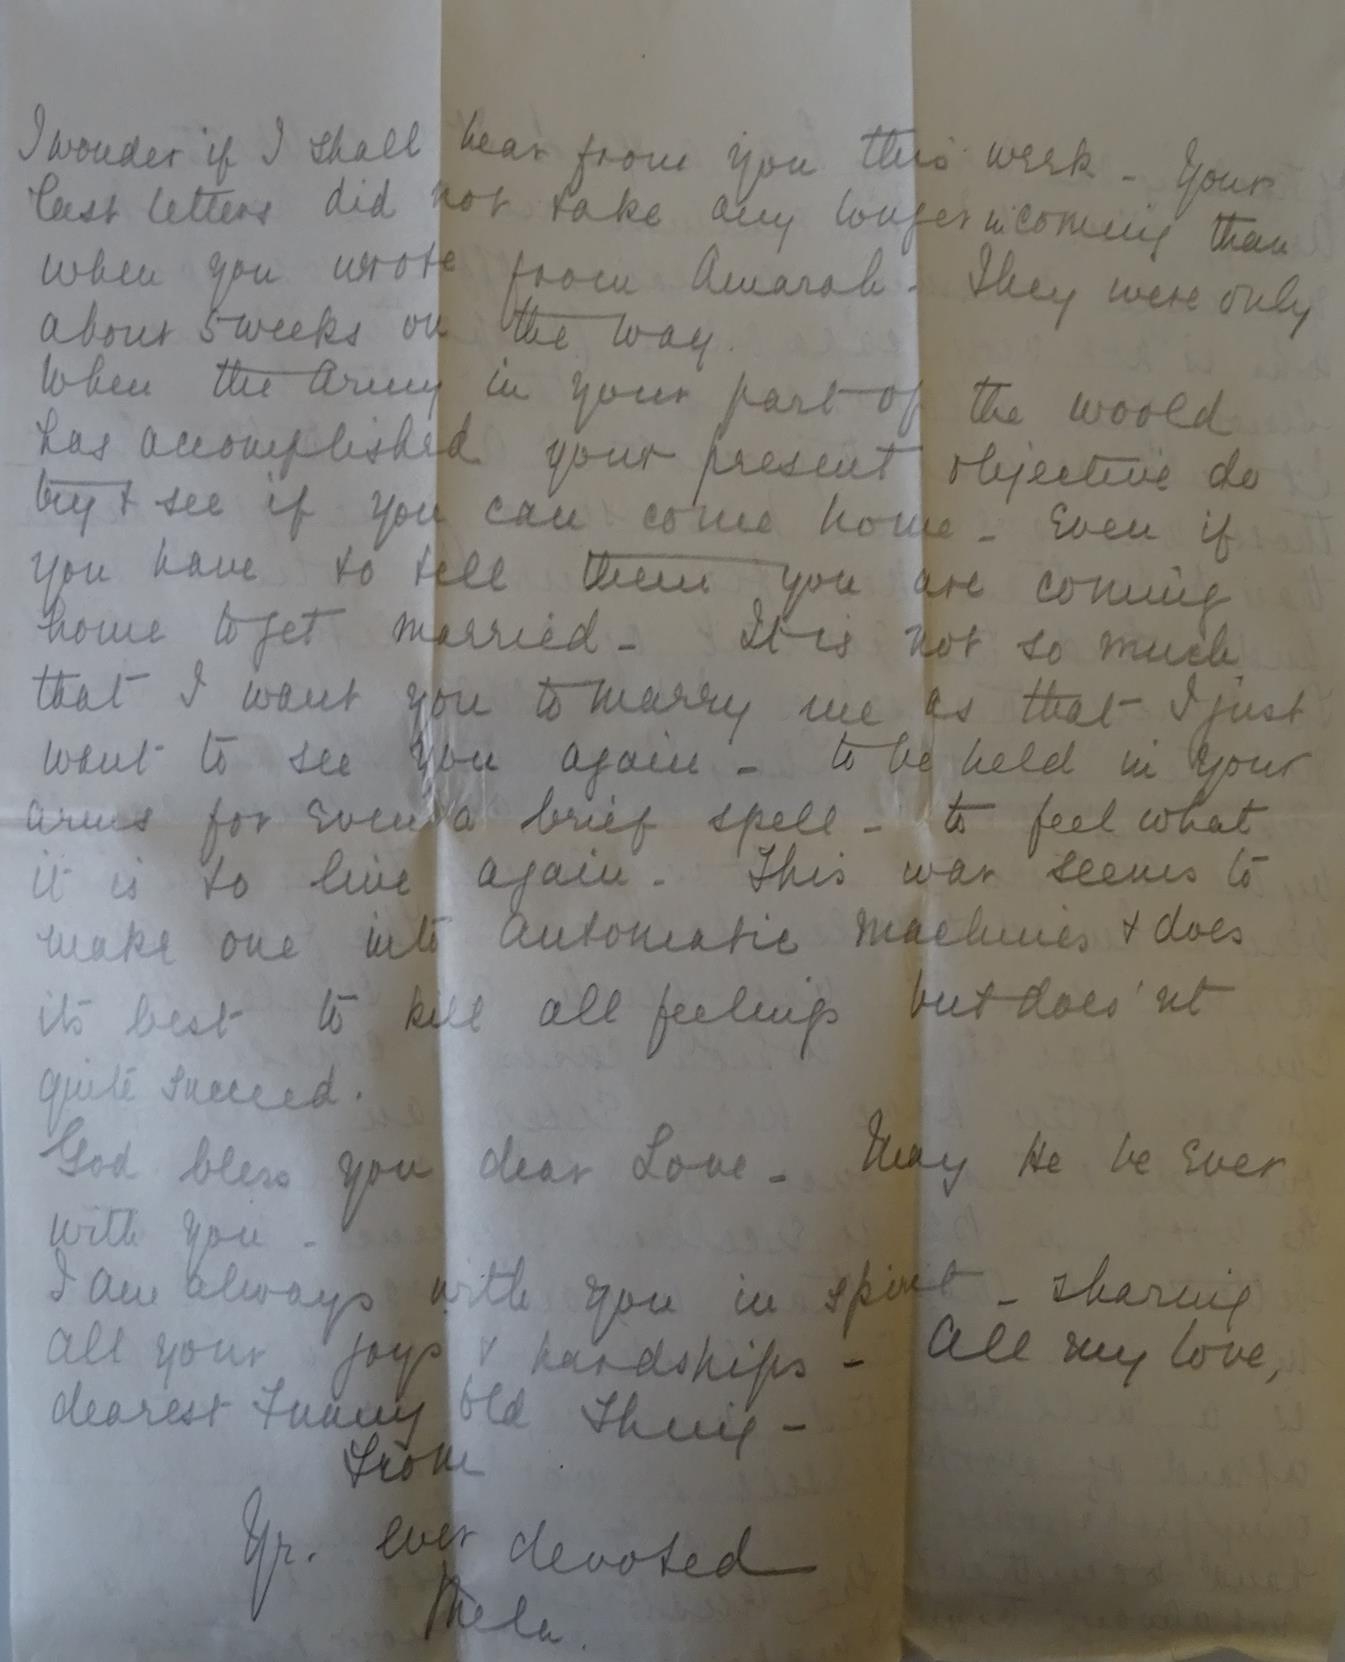 I wonder if I shall hear from you this week - Your
last letters did not take any longer in coming than
when you wrote from Amarah - They were only
about 5 weeks on the way.
When the Army in your part of the woold
has accomplished your present objective do
try & see if you can come home - Even if
you have to tell them you are coming
home to get married - It is not so much
that I want you to marry me as that I just
want to see you again - to be held in your
arms for even a brief spell - to feel what
it is to live again - This war seems to
make one into automatic machines & does
its best to kill all feelings but does'nt
quite succeed.
God bless you dear Love - May He be Ever
with you -
I am always with you in spirit - sharing
all your joys & hardships - All my love,
dearest Funny Old Thing -
From
Yr. ever devoted